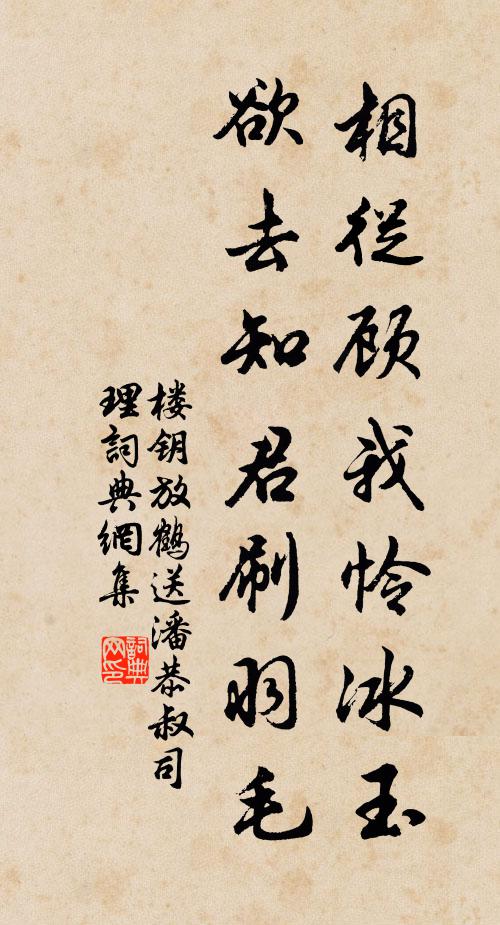 相從顾我怜冰玉
欲去知君刷羽毛
楼钥放鶴送潘恭叔司
理詞典網集
詞典
网印